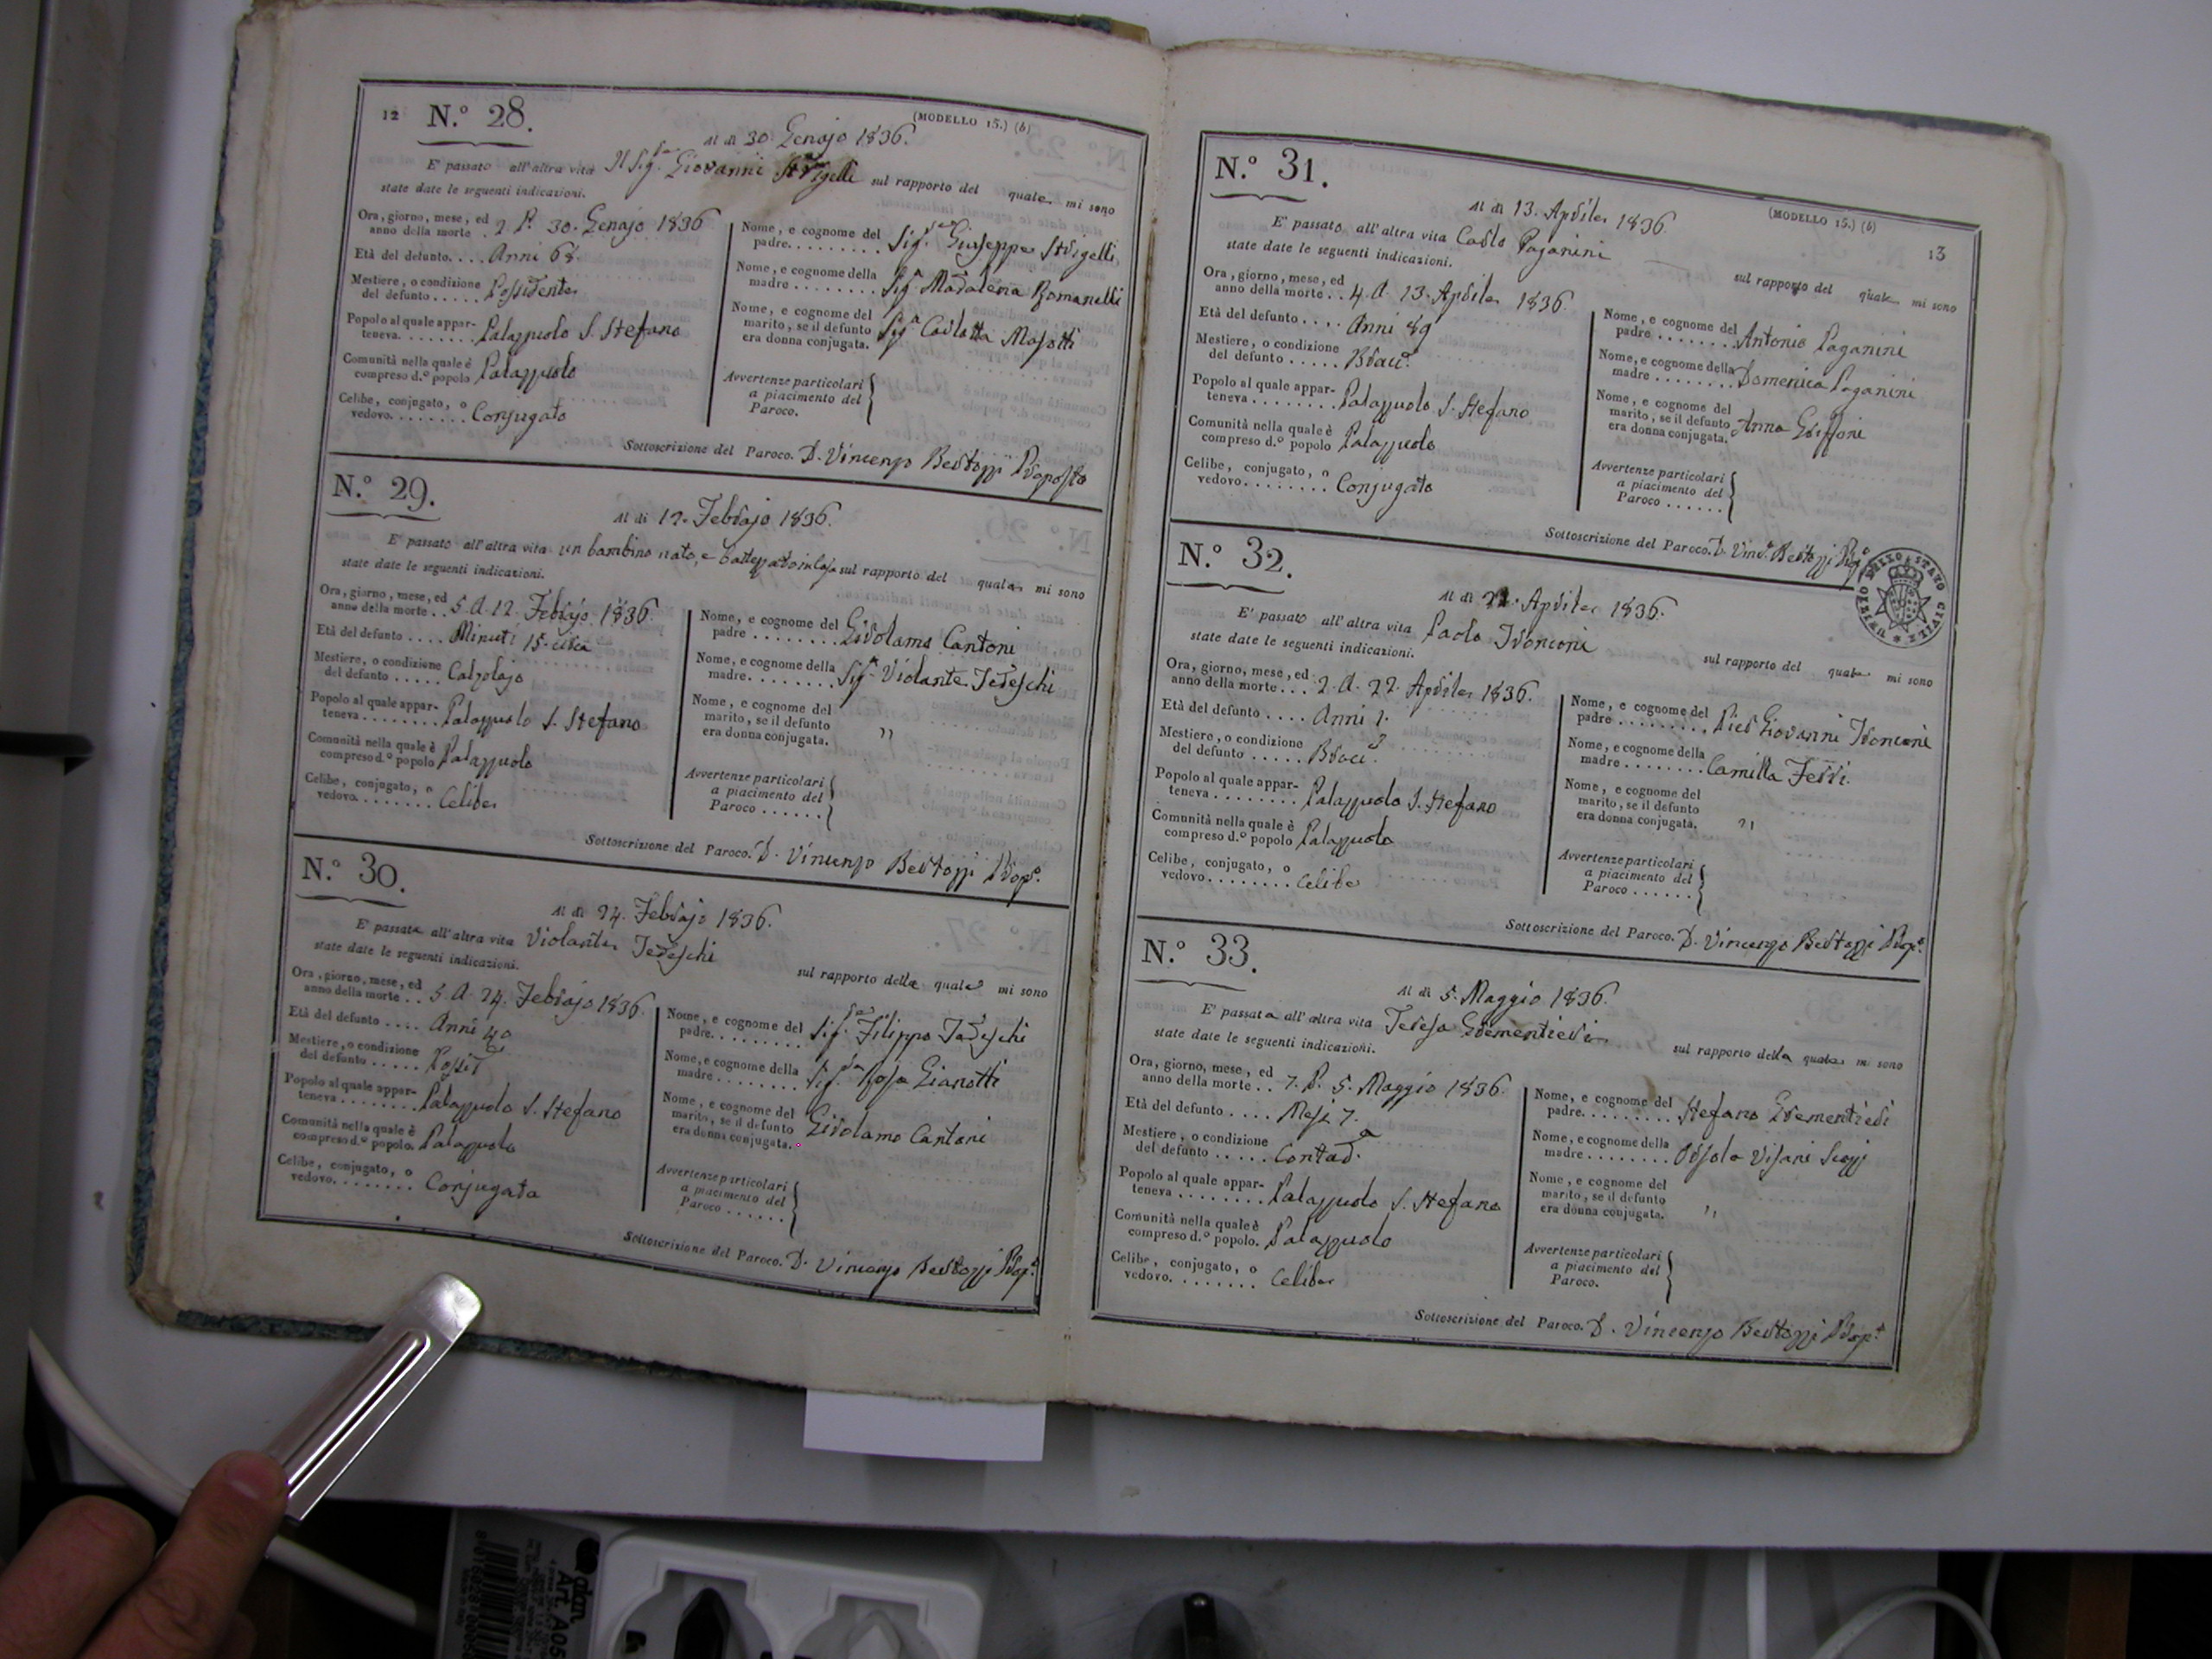 12 N.° 28. (MODELLO 15.) (b)
Al dì 30 Genajo 1836.
E' passato all'altra vita Il Sig.r Giovanni Strigelli sul rapporto del quale mi sono
state date le seguenti indicazioni.
Ora, giorno, mese, ed
anno della morte . 2. P. 30. Genajo 1836
Età del defunto. . . . Anni 68.
Mestiere, o condizione
del defunto . . . . . Possidente
Popolo al quale appar-
teneva. . . . . . . . Palazzuolo S. Stefano
Comunità nella quale è
compreso d.° popolo Palazzuolo
Celibe, conjugato, o
vedovo. . . . . . . . Conjugato
Nome, e cognome del
padre. . . . . . . . . Sig.r Giuseppe Strigelli
Nome, e cognome della
madre . . . . . . . . Sig.a Madalena Romanelli
Nome, e cognome del
marito, se il defunto
era donna conjugata. Sig.a Carlotta Masotti
Avvertenze particolari
a piacimento del
Paroco.
Sottoscrizione del Paroco. D. Vincenzo Bertozzi Proposto
N.° 29.
Al dì 12. Febrajo 1836.
E' passato all'altra vita un bambino nato, e battezzato in Casa sul rapporto del quale mi sono
state date le seguenti indicazioni.
Ora, giorno, mese, ed
anno della morte . . 5. A. 12. Febrajo 1836.
Età del defunto . . . . Minuti 15. circa
Mestiere, o condizione
del defunto . . . . . Calzolajo
Popolo al quale appar-
teneva . . . . . . . . Palazzuolo S. Stefano
Comunità nella quale è
compreso d.° popolo Palazzuolo
Celibe, conjugato, o
vedovo. . . . . . . . Celibe
Nome, e cognome del
padre . . . . . . . . Girolamo Cantoni
Nome, e cognome della
madre. . . . . . . . Sig.a Violante Tedeschi
Nome, e cognome del
marito, se il defunto
era donna conjugata. "
Avvertenze particolari
a piacimento del
Paroco . . . . . .
Sottoscrizione del Paroco. D. Vincenzo Bertozzi Prop.°
N.° 30.
Al dì 24. Febrajo 1836.
E' passata all'altra vita Violante Tedeschi sul rapporto della quale mi sono
state date le seguenti indicazioni.
Ora, giorno, mese, ed
anno della morte . . 5. A. 24. Febrajo 1836.
Età del defunto . . . . Anni 40
Mestiere, o condizione
del defunto . . . . . Possid.e
Popolo al quale appar-
teneva . . . . . . . . Palazzuolo S. Stefano
Comunità nella quale è
compreso d.° popolo. Palazzuolo
Celibe, conjugato, o
vedovo. . . . . . . . Conjugata
Nome, e cognome del
padre. . . . . . . . . Sig.r Filippo Tedeschi
Nome, e cognome della
madre . . . . . . . . Sig.ra Rosa Gianotti
Nome, e cognome del
marito, se il defunto
era donna conjugata. Girolamo Cantoni
Avvertenze particolari
a piacimento del
Paroco . . . . . .
Sottoscrizione del Paroco. D. Vincenzo Bertozzi Prop.°
N.° 31. (MODELLO 15.) (b) 13
Al dì 13. Aprile 1836.
E' passato all'altra vita Carlo Paganini sul rapporto del quale mi sono
state date le seguenti indicazioni.
Ora, giorno, mese, ed
anno della morte . . 4. A. 13. Aprile 1836.
Età del defunto . . . . Anni 89
Mestiere, o condizione
del defunto . . . . . Brac.e
Popolo al quale appar-
teneva . . . . . . . . Palazzuolo S. Stefano
Comunità nella quale è
compreso d.° popolo Palazzuolo
Celibe, conjugato, o
vedovo. . . . . . . . Conjugato
Nome, e cognome del
padre . . . . . . . . Antonio Paganini
Nome, e cognome della
madre . . . . . . . . Domenica Paganini
Nome, e cognome del
marito, se il defunto
era donna conjugata. Anna Griffoni
Avvertenze particolari
a piacimento del
Paroco . . . . . .
Sottoscrizione del Paroco. D. Vinc.° Bertozzi Prop.°
UFFIZIO DELLO STATO CIVILE
N.° 32.
Al dì 22. Aprile 1836.
E' passato all'altra vita Paolo Tronconi sul rapporto del quale mi sono
state date le seguenti indicazioni.
Ora, giorno, mese, ed
anno della morte . . . 2. A. 22. Aprile 1836.
Età del defunto . . . . Anni 1.
Mestiere, o condizione
del defunto . . . . . Brac.e
Popolo al quale appar-
teneva . . . . . . . . Palazzuolo S. Stefano
Comunità nella quale è
compreso d.° popolo Palazzuolo
Celibe, conjugato, o
vedovo. . . . . . . . Celibe
Nome, e cognome del
padre . . . . . . . . . Pier Giovanni Tronconi
Nome, e cognome della
madre . . . . . . . . Camilla Ferri.
Nome, e cognome del
marito, se il defunto
era donna conjugata. "
Avvertenze particolari
a piacimento del
Paroco . . . . . .
Sottoscrizione del Paroco. D. Vincenzo Bertozzi Prop.°
N.° 33.
Al dì 5. Maggio 1836.
E' passata all'altra vita Teresa Grementieri sul rapporto della quale mi sono
state date le seguenti indicazioni.
Ora, giorno, mese, ed
anno della morte . . 7. P. 5. Maggio 1836.
Età del defunto . . . . Mesi 7.
Mestiere, o condizione
del defunto . . . . . Contad.a
Popolo al quale appar-
teneva . . . . . . . . Palazzuolo S. Stefano
Comunità nella quale è
compreso d.° popolo. Palazzuolo
Celibe, conjugato, o
vedovo. . . . . . . . Celibe
Nome, e cognome del
padre. . . . . . . . . Stefano Grementieri
Nome, e cognome della
madre . . . . . . . . Orsola Visani
Nome, e cognome del
marito, se il defunto
era donna conjugata. "
Avvertenze particolari
a piacimento del
Paroco.
Sottoscrizione del Paroco. D. Vincenzo Bertozzi Prop.°
Art. A05